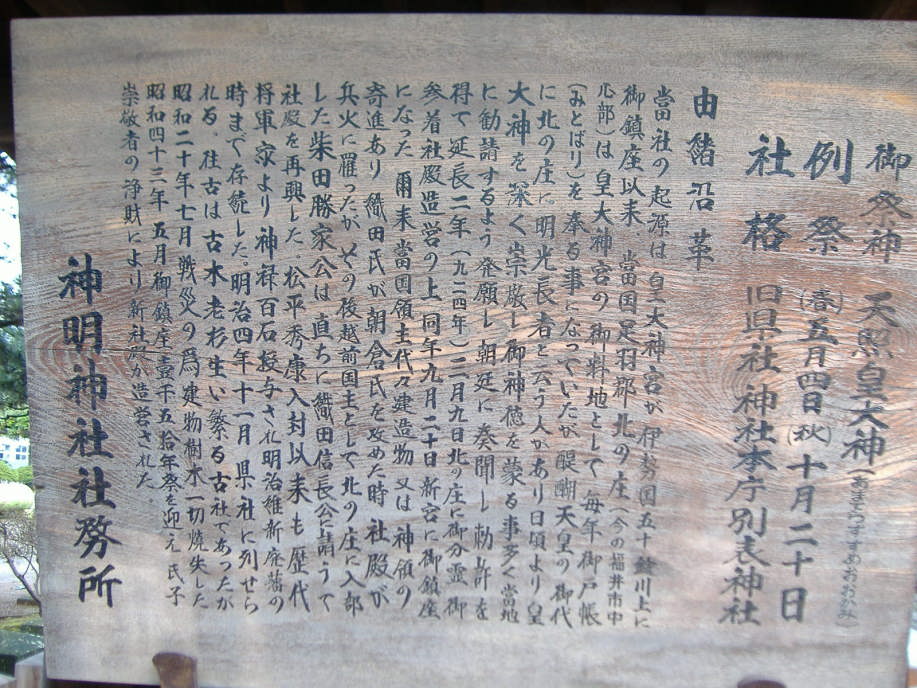 御祭神　天照皇大神（あまてつすすめおおかみ）
例祭　（春）五月四日（秋）十月二十日
社格　旧県社　神社本庁別表神社
由緒沿革
當社の起源は　皇大神宮が　伊勢国五十鈴川上に
御鎮座以来、當国足羽郡北の庄（今の福井市中
心部）は皇大神宮の御料地として　毎年御戸帳
（みとばり）を奉る事になっていたが　醍醐天皇の御代
に北の庄に明光長者と云う人があり日頃より皇
大神を深く崇敬し御神徳を蒙る事多く當地
に勧請するよう発願し朝廷に奏聞し勅許を
得て延長二年（九二四年）三月九日北の庄に御分霊御
参着社殿造営の上同年九月二十日新宮に御鎮座
になった　爾来當国領主代々建造物又は神領の
寄進あり　織田氏が朝倉氏を攻めた時　社殿が
兵火に罹ったが　その後越前国主として北の庄に入部
した柴田勝家公は直ちに織田信長公に請うて
社殿を再興した。松平秀康入封以来も歴代
将軍家より神禄百石授与され明治維新廃藩の
時まで存続した。明治四年十一月県社に列せら
れる。往古は古木老杉生い繁る古社であったが
昭和二十年七月戦災の為建物樹木一切焼失した
昭和四十三年五月御鎮座壹千五拾年祭を迎え氏子
崇敬者の浄財により新社殿が造営された。
神明神社社務所